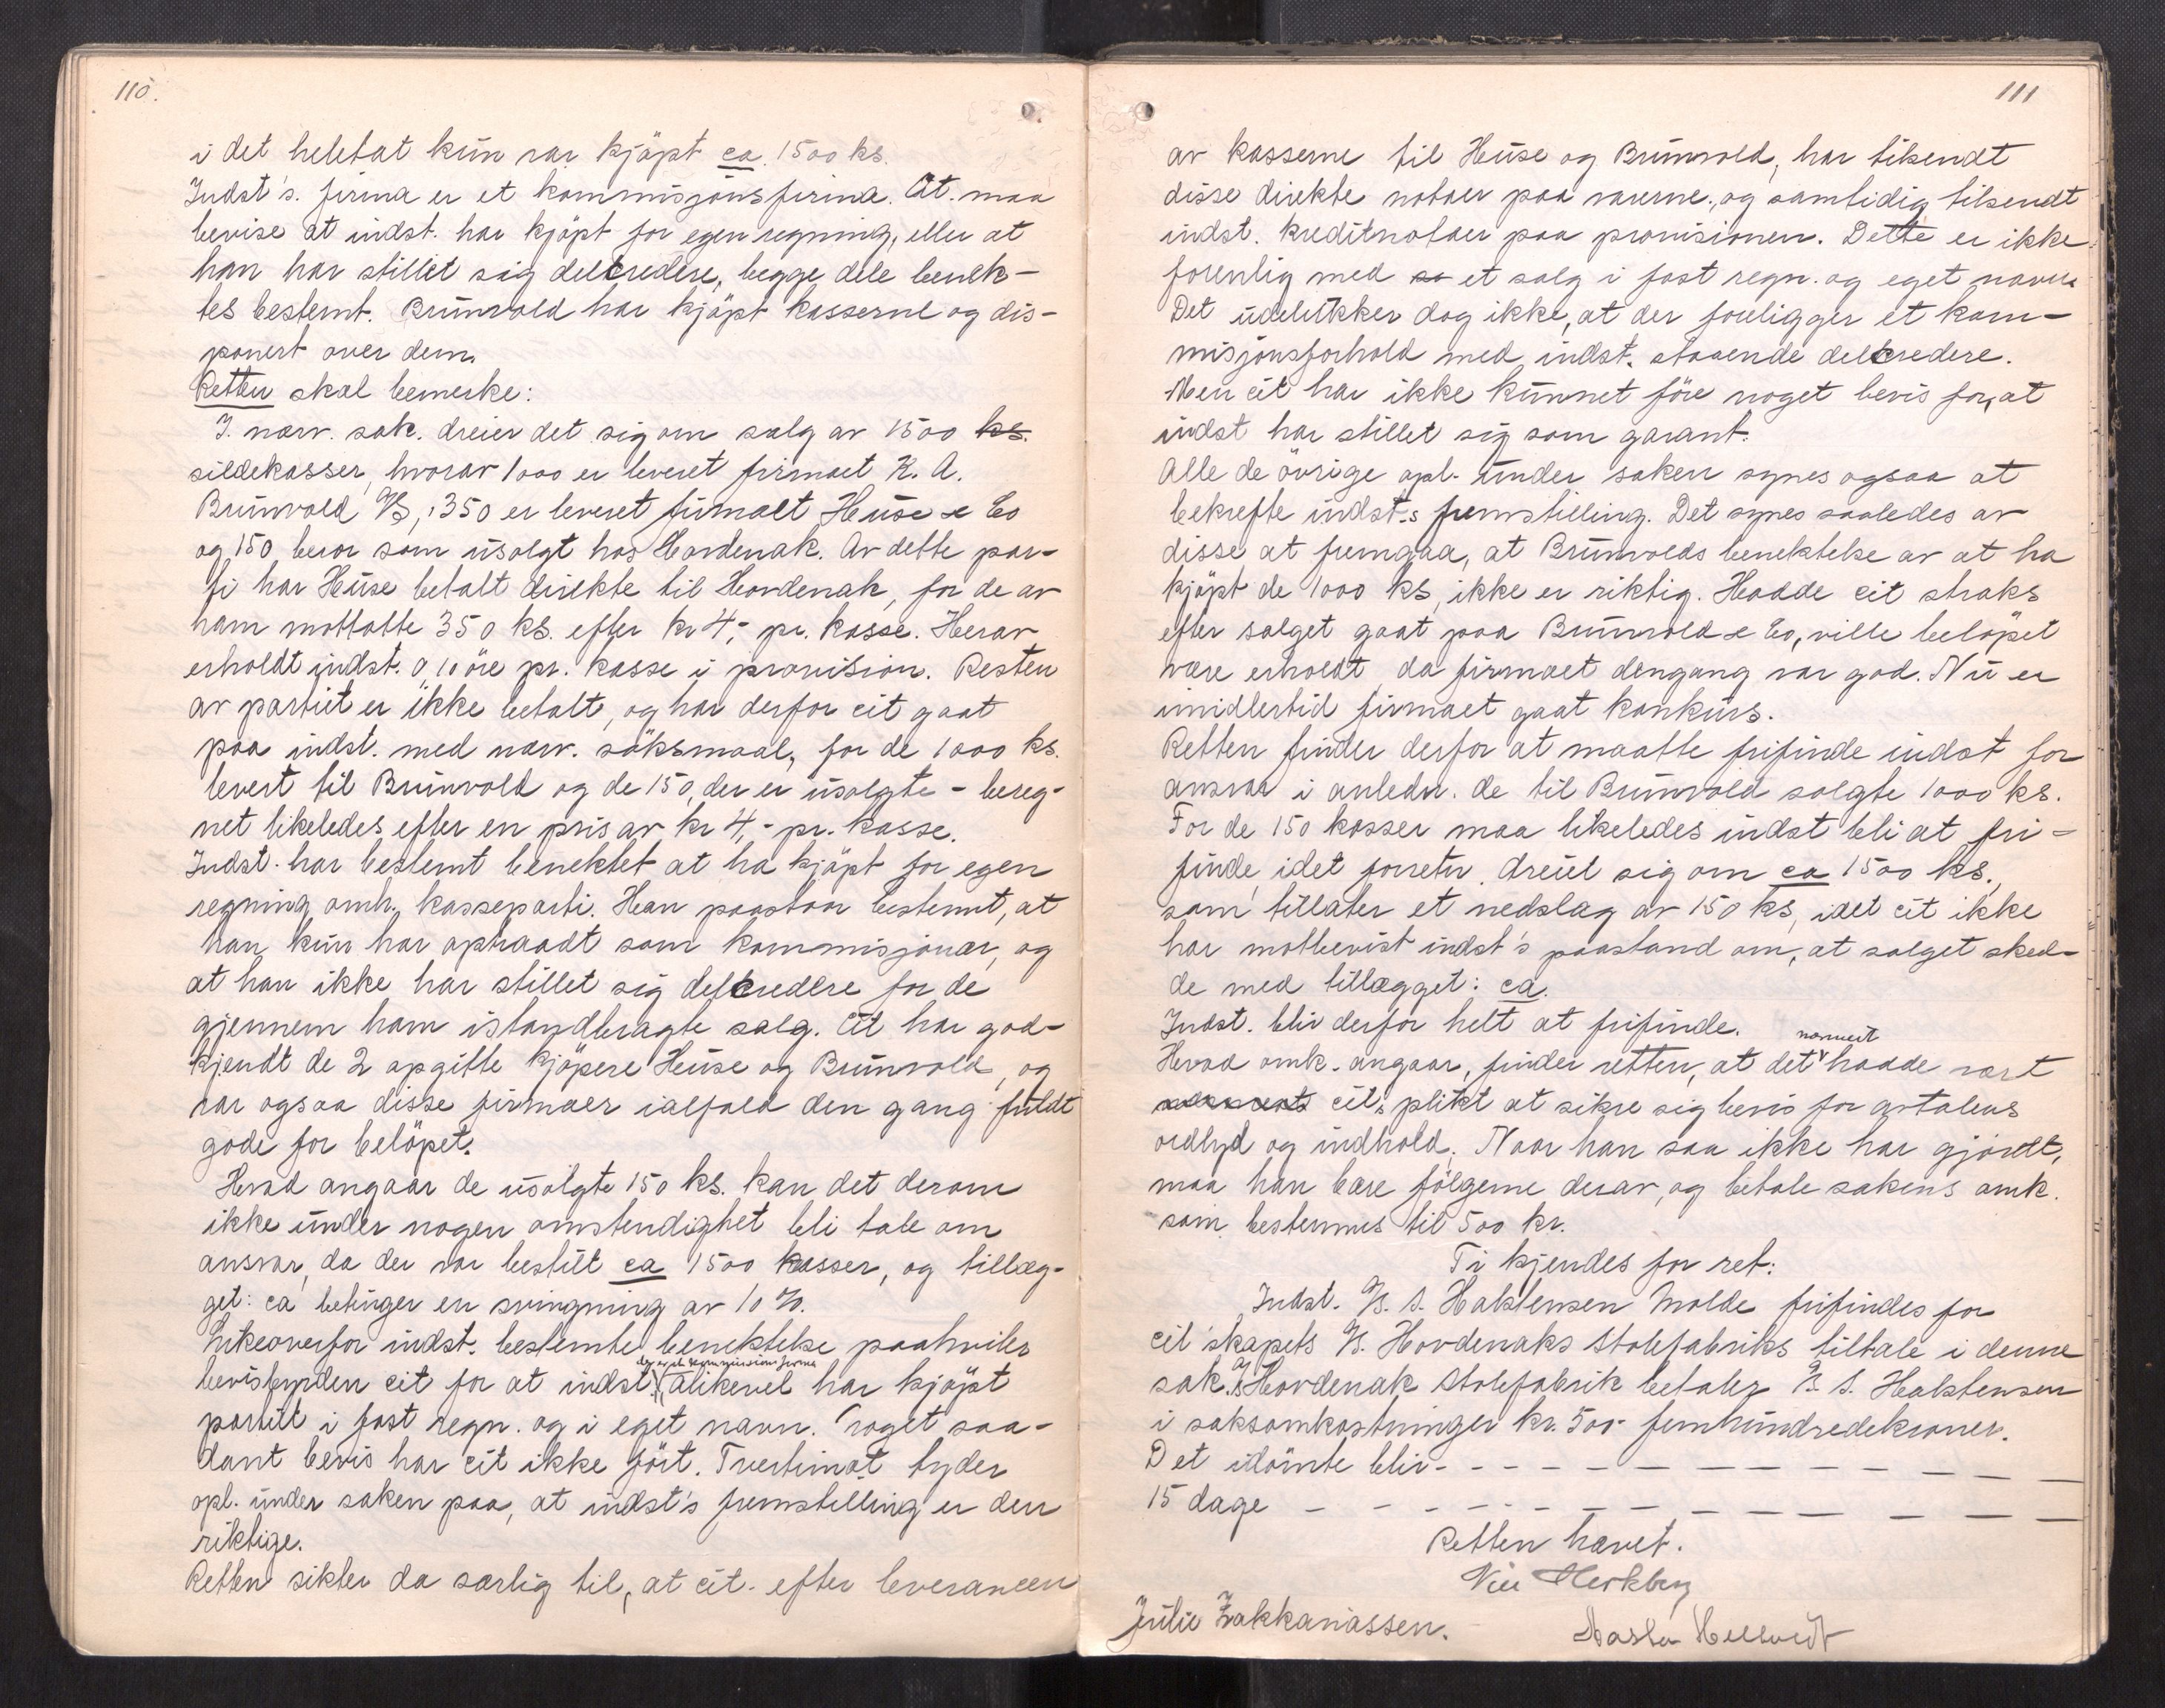 110.
i det heletat kun var kjöpt ca. 1500 ks.
Indst's. firma er et kommisjonsfirma. Cit. maa
bevise at indst. har kjöpt for egen regning, eller at
han har stillet sig delcredere, begge dele benek-
tes bestemt. Brunvold har kjöpt kasserne og dis-
ponert over dem.
Retten skal bemerke:
I. nærv. sak. dreier det sig om salg av 1500 ks.
sildekasser, hvorav 1000 er leveret firmaet K. A.
Brunvold A/S, 350 er leveret firmaet Huse & Co
og 150 beror som usolgt hos Hordenak. Av dette par-
ti har Huse betalt direkte til Hordenak, for de av
ham mottatte 350 ks. efter kr 4,- pr. kasse. Herav
erholdt indst. 0,10 öre pr. kasse i provision. Resten
av partiet er ikke betalt, og har derfor cit gaat
paa indst. med nærv. söksmaal, for de 1000 ks.
levert til Brunvold og de 150, der er usolgte - bereg-
net likeledes efter en pris av kr 4,- pr. kasse.
Indst. har bestemt benektet at ha kjöpt for egen
regning omh. kasseparti. Han paastaar bestemt, at
han kun har optraadt som kommisjonær, og
at han ikke har stillet sig delcredere for de
gjennem ham istandbragte salg. Cit har god-
kjendt de 2 opgitte kjöpere Huse og Brunvold, og
var ogsaa disse firmaer ialfald den gang fuldt
gode for belöpet.
Hvad angaar de usolgte 150 ks. kan det derom
ikke under nogen omstendighet bli tale om
ansvar, da der var bestilt ca 1500 kasser, og tillæg-
get: ca betinger en svingning av 10 %.
Likeoverfor indst. bestemte benektelse paahviler
der er et kommissions firma
bevisbyrden cit for at indst. alikevel har kjöpt
partiet i fast regn. og i eget navn. Noget saa-
dant bevis har cit ikke fört. Tvertimot tyder
opl. under saken paa, at indst's fremstilling er den
riktige.
Retten sikter da særlig til, at cit. efter leverancen
111
av kasserne til Huse og Brunvold, har tilsendt
disse direkte notaer paa varerne, og samtidig tilsendt
indst. kreditnotaer paa provisionen. Dette er ikke
forenlig med et salg i fast regn. og eget navn.
Det udelukker dog ikke, at der foreligger et kom-
misjonsforhold med indst. staaende delcredere.
Men cit har ikke kunnet före noget bevis for, at
indst har stillet sig som garant.
Alle de övrige opl. under saken synes ogsaa at
bekrefte indst.s fremstilling. Det synes saaledes av
disse at fremgaa, at Brunvolds benektelse av at ha
kjöpt de 1000 ks, ikke er riktig. Hadde cit straks
efter salget gaat paa Brunvold & Co, ville belöpet
være erholdt da firmaet dengang var god. Nu er
imidlertid firmaet gaat konkurs.
Retten finder derfor at maatte frifinde indst for
ansvar i anledn. de til Brunvold solgte 1000 ks.
For de 150 kasser maa likeledes indst bli at fri-
finde, idet forretn. dreiet sig om ca 1500 ks.,
som tillater et nedslag av 150 ks, idet cit ikke
har motbevist indst's paastand om, at salget sked-
de med tillægget: ca.
Indst. blir derfor helt at frifinde.
Hvad omk. angaar, finder retten, at det hadde vært
cit.s plikt at sikre sig bevis for avtalens
ordlyd og indhold. Naar han saa ikke har gjordt,
maa han bære fölgerne derav, og betale sakens omk.
som bestemmes til 500 kr.
Ti kjendes for ret:
Indst. A/S. S. Halstensen Molde frifindes for
cit'skapets A/S. Hordenaks Stolefabriks tiltale i denne
sak. A/S Hordenak Stolefabrik betaler A/S. S. Halstensen
i saksomkostninger kr. 500- femhundredekroner.
Det idömte blir - - - - - - - - -
15 dage - - - - - - - - - -
Retten hævet.
Julie Zakkariassen.